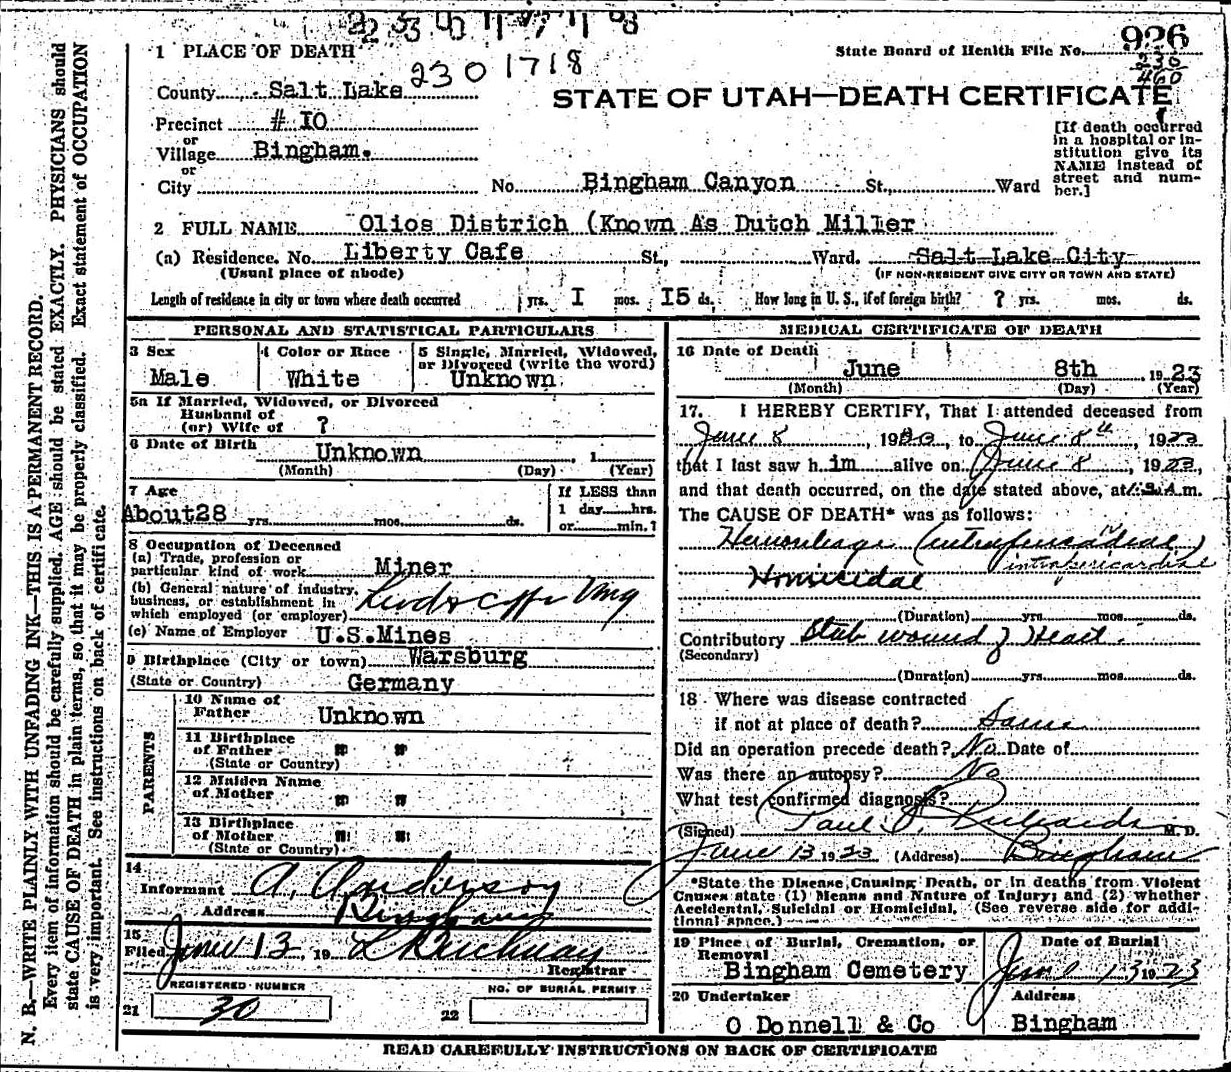 2301718
State Board of Health File No. 926
330
460
1 PLACE OF DEATH
County Salt Lake
STATE OF UTAH—DEATH CERTIFICATE
Precinct # 10
or
Village Bingham.
or
City No. Bingham Canyon St., Ward
[If death occurred in a hospital or in-
stitution give its
NAME instead of
street and num-
ber.]
2 FULL NAME Olios Districh (Known As Dutch Miller
(a) Residence. No. Liberty Cafe St., Ward. Salt Lake City
(Usual place of abode) (IF NON-RESIDENT GIVE CITY OR TOWN AND STATE)
Length of residence in city or town where death occurred yrs. I mos. I5 ds. How long in U. S., if of foreign birth? ? yrs. mos. ds.
PERSONAL AND STATISTICAL PARTICULARS
3 Sex Male
4 Color or Race White
5 Single, Married, Widowed,
or Divorced (write the word)
Unknown
5a If Married, Widowed, or Divorced
Husband of
(or) Wife of ?
6 Date of Birth Unknown , 1
(Month) (Day) (Year)
7 Age
About28 yrs. mos. ds.
If LESS than
1 day hrs.
or min.?
8 Occupation of Deceased
(a) Trade, profession or
particular kind of work Miner
(b) General nature of industry,
business, or establishment in
which employed (or employer)
(c) Name of Employer U.S.Mines
9 Birthplace (City or town) Warsburg
(State or Country) Germany
PARENTS
10 Name of
Father Unknown
11 Birthplace
of Father " "
(State or Country)
12 Maiden Name
of Mother " "
13 Birthplace
of Mother " "
(State or Country)
14
Informant A. Anderson
Address Bingham
15
Filed June 13 19
Registrar
REGISTERED NUMBER
21 30
NO. OF BURIAL PERMIT
22
MEDICAL CERTIFICATE OF DEATH
16 Date of Death
June 8th , 1923
(Month) (Day) (Year)
17. I HEREBY CERTIFY, That I attended deceased from
June 8 , 19 , to June 8th , 19
that I last saw him alive on June 8 , 19 ,
and that death occurred, on the date stated above, at m.
The CAUSE OF DEATH* was as follows:
Hemorrhage (intrapericardial)
intrapericardial
Homicidal
(Duration) yrs. mos. ds.
Contributory Stab wound of Heart
(Secondary)
(Duration) yrs. mos. ds.
18 Where was disease contracted
if not at place of death? Same
Did an operation precede death? No Date of
Was there an autopsy? No
What test confirmed diagnosis?
(Signed) Paul S. Richards M. D.
June 13 1923 (Address) Bingham
*State the Disease Causing Death, or in deaths from Violent
Causes state (1) Means and Nature of Injury; and (2) whether
Accidental, Suicidal or Homicidal. (See reverse side for addi-
tional space.)
19 Place of Burial, Cremation, or
Removal
Bingham Cemetery
Date of Burial
June 13 1923
20 Undertaker
O Donnell & Co
Address
Bingham
READ CAREFULLY INSTRUCTIONS ON BACK OF CERTIFICATE
N. B.—WRITE PLAINLY WITH UNFADING INK—THIS IS A PERMANENT RECORD.
Every item of information should be carefully supplied. AGE should be stated EXACTLY. PHYSICIANS should
state CAUSE OF DEATH in plain terms, so that it may be properly classified. Exact statement of OCCUPATION
is very important. See instructions on back of certificate.